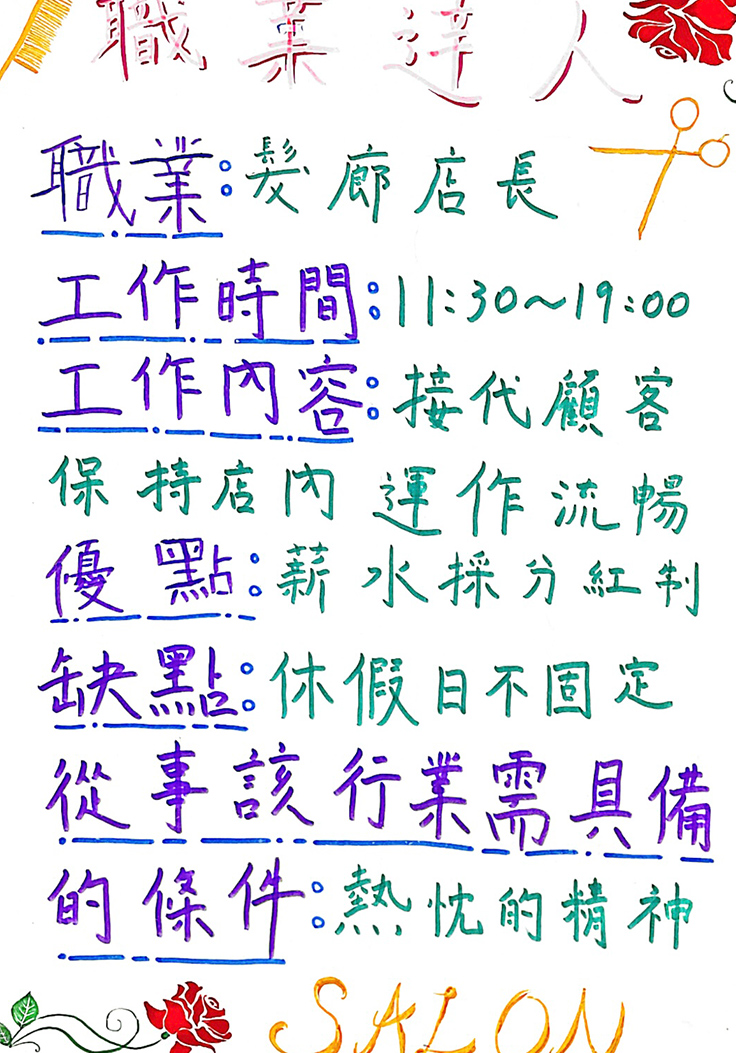 職業達人
職業:髮廊店長
工作時間:11:30~19:00
工作內容:接代顧客
保持店內運作流暢
優點:薪水採分紅制
缺點:休假日不固定
從事該行業需具備
的條件:熱忱的精神
SALON